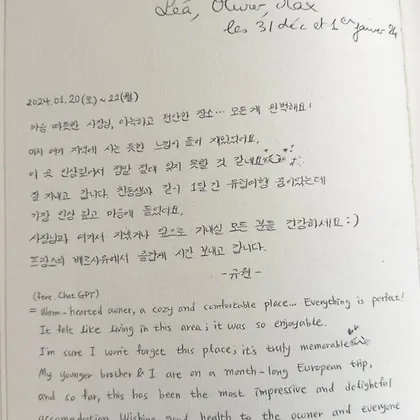 Léa, Oliver, Max
les 31 déc et 1er janvier 24
2024.01.20(토)~22(월)
마음 따뜻한 사장님, 아늑하고 편안한 장소... 모든게 완벽해요!
마치 여기 지역에 사는 듯한 느낌이 들어 재밌었어요.
이 곳 인상깊어서 정말 절대 잊지 못할 것 같네요
잘 지내고 갑니다. 친동생과 같이 1달간 유럽여행 중이었는데
가장 인상 깊고 마음에 들었어요.
사장님과 여기서 지냈거나 앞으로 지내실 모든 분들 건강하세요 :)
프랑스의 베르사유에서 즐겁게 시간 보내고 갑니다.
-규원-
(feat. Chat GPT)
= Warm-hearted owner, a cozy and comfortable place... Everything is perfect!
It felt like living in this area; it was so enjoyable.
I'm sure I won't forget this place; it's truly memorable
My younger brother & I are on a month-long European trip,
and so far, this has been the most impressive and delightful
accomodation. Wishing good health to the owner and everyone